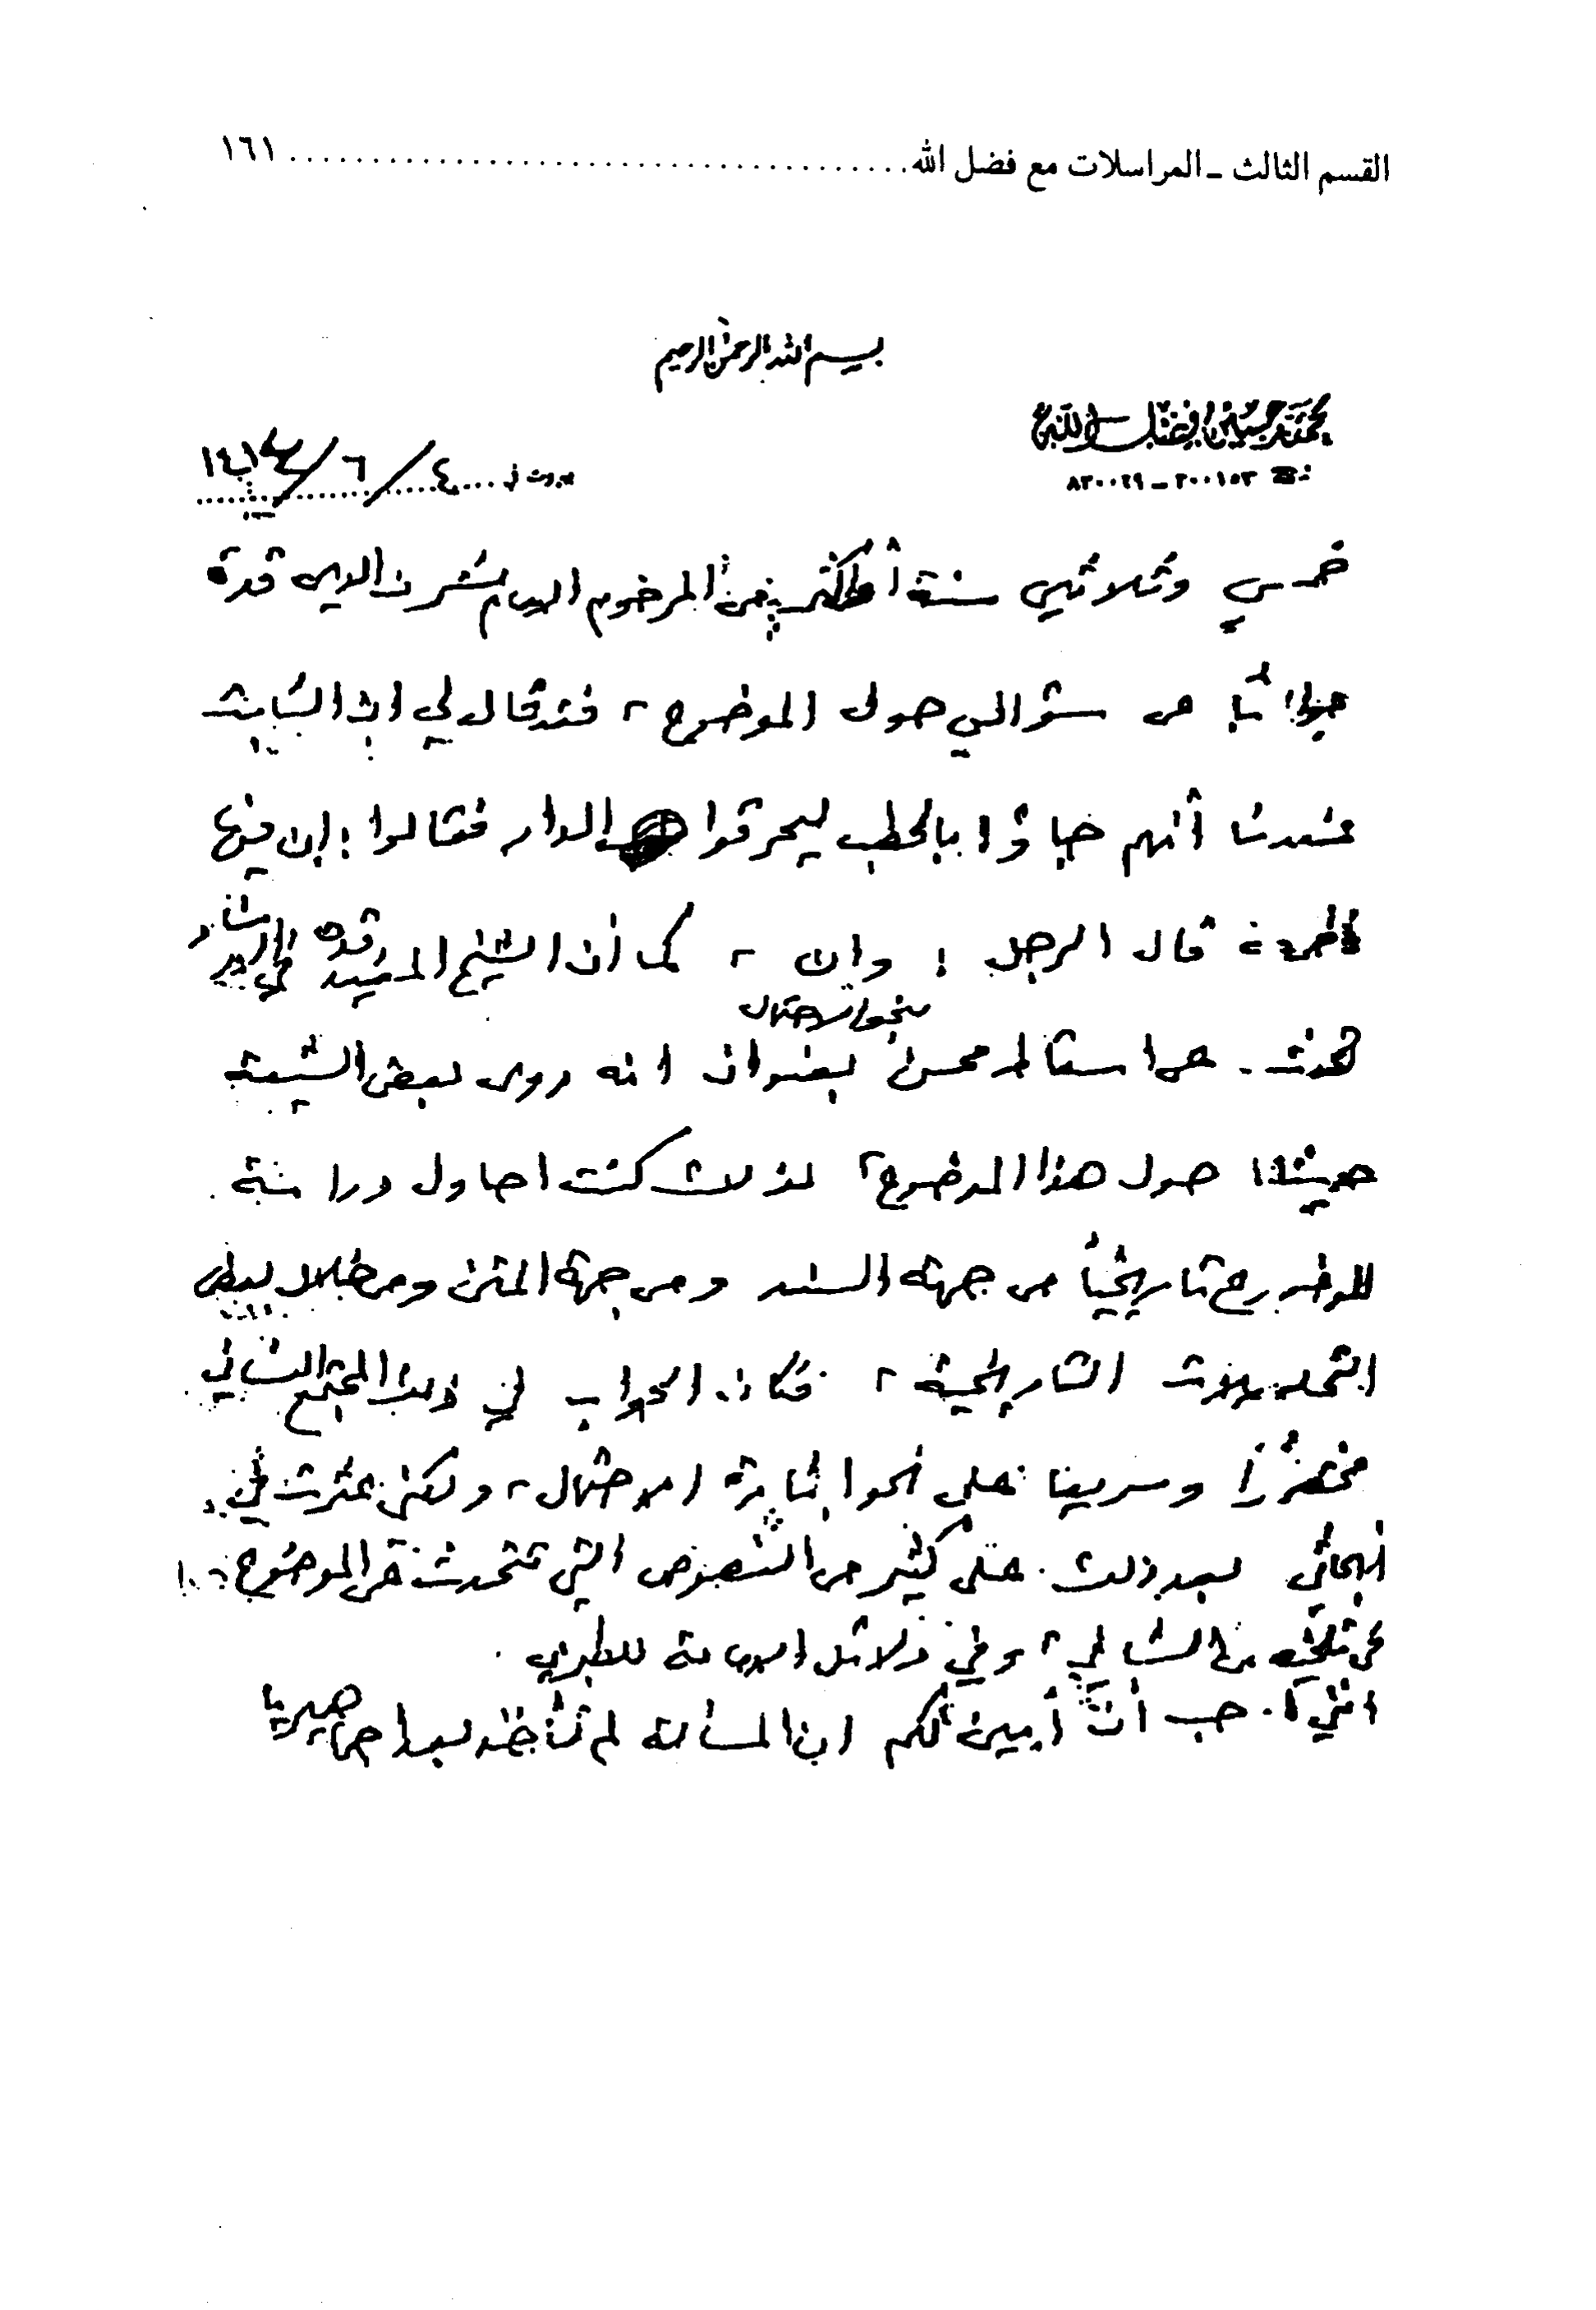 القسم الثالث ـ المراسلات مع فضل الله ........................................ ١٦١
بسم الله الرحمن الرحيم
محمد حسين فضل الله
بيروت في ٤ / ٦ / ١٤١٤
خمس وثلاثين سنة أو أكثر من المرحوم الامام شرف الدين قده
جواباً من سؤالي حول الموضوع، فقد قال لي ان الثابت
عندنا أنهم جاؤا بالحطب ليحرقوا الدار فقالوا: إن فيها
فاطمة قال الرجل: وان، كما أن الشيخ المفيد قده في الارشاد
تحدث عن اسقاط محسن بعنوان انه روى بعض الشيعة
بنحو الاحتمال
حديثاً حول هذا الموضوع، لذلك كنت احاول دراسة
الموضوع تاريخياً من جهة السند ومن جهة المتن ومن خلال بعض
التحليلات التاريخية، فكان الجواب في ذلك المجتمع النسائي
مختصراً وسريعا على نحو إثارة الاحتمال، ولكني عثرت في
ابحاثي بعد ذلك على كثير من النصوص التي تتحدث عن الموضوع
الشافي، وفي دلائل الامامة للطبري.
انني أحب أن أبين لكم ان المسألة لم تأخذ بعداً جماهيريا